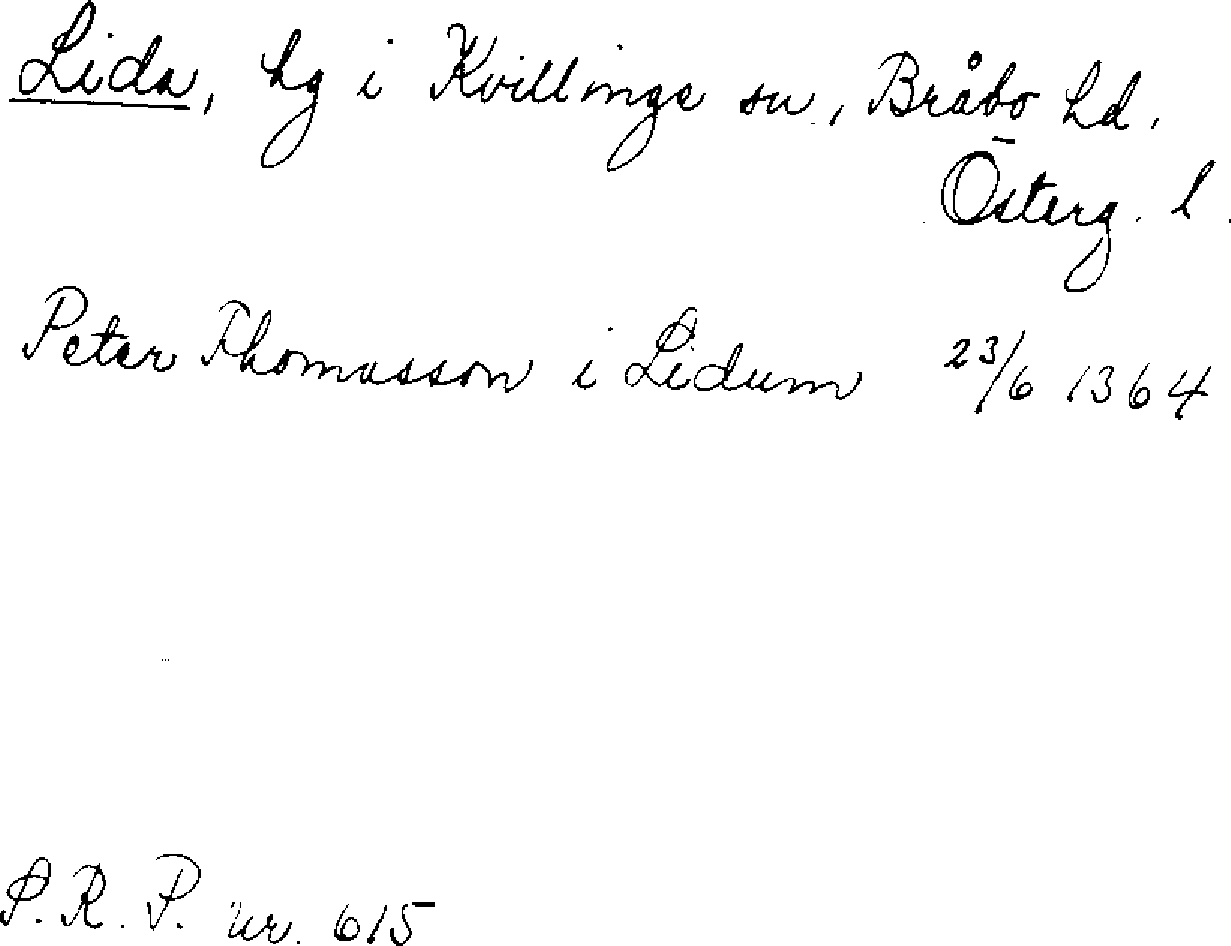 Lida, hg i Kvillinge sn, Bråbo hd.
Österg. l.
Peter Thomasson i Lidum 23/6 1364
S.R.P. nr. 615